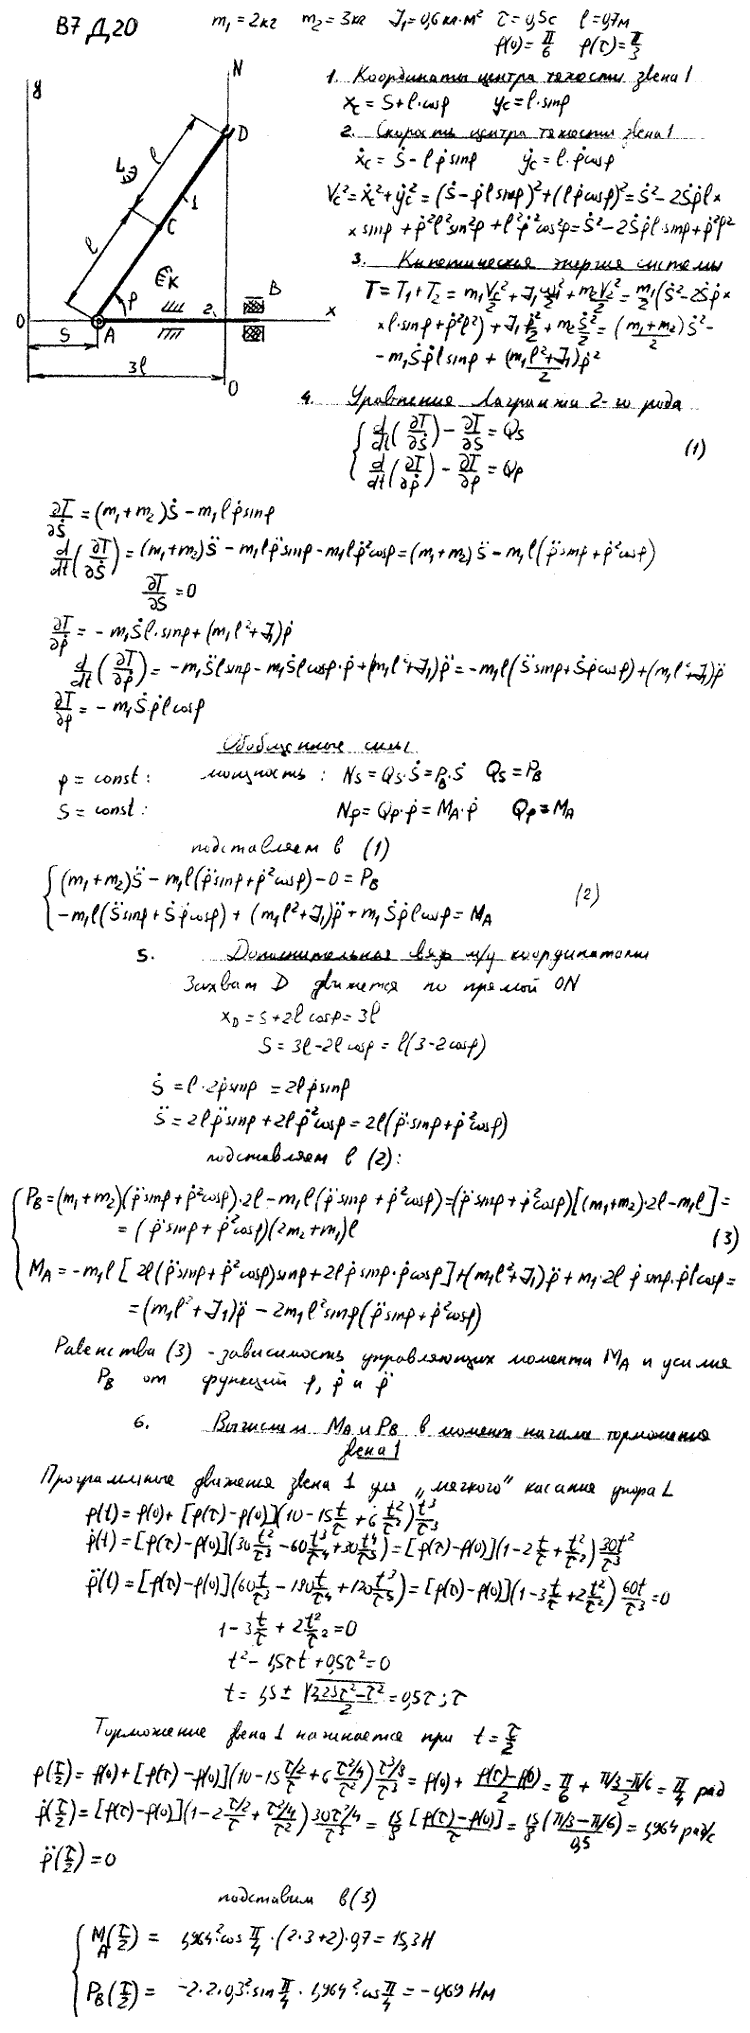 В7 Д.20
m₁ = 2кг m₂ = 3кг J₁ = 0,6 кг·м² τ = 0,5с l = 0,7м
φ(0) = π/6 φ(τ) = π/3
1. Координаты центра тяжести звена 1
x_c = S + l·cosφ y_c = l·sinφ
2. Скорость центра тяжести звена 1
ẋ_c = Ṡ − lφ̇ sinφ ẏ_c = l·φ̇ cosφ
V_c² = ẋ_c² + ẏ_c² = (Ṡ − φ̇ l sinφ)² + (lφ̇ cosφ)² = Ṡ² − 2Ṡφ̇ l ×
× sinφ + φ̇² l² sin²φ + l² φ̇² cos²φ = Ṡ² − 2Ṡφ̇ l·sinφ + φ̇² l²
3. Кинетическая энергия системы
T = T₁ + T₂ = m₁V_c²/2 + J₁ω₁²/2 + m₂V₂²/2 = m₁/2 (Ṡ² − 2Ṡφ̇ ×
× l·sinφ + φ̇² l²) + J₁ φ̇²/2 + m₂ Ṡ²/2 = (m₁+m₂)/2 Ṡ² −
− m₁Ṡφ̇ l sinφ + (m₁l² + J₁)/2 φ̇²
y
N
D
L
Э
l
1
C
l
Ек
φ
2
B
0
S
A
x
3l
O
4. Уравнение Лагранжа 2-го рода
d/dt(∂T/∂Ṡ) − ∂T/∂S = Q_S
d/dt(∂T/∂φ̇) − ∂T/∂φ = Qφ
(1)
∂T/∂Ṡ = (m₁+m₂)Ṡ − m₁lφ̇ sinφ
d/dt(∂T/∂Ṡ) = (m₁+m₂)S̈ − m₁lφ̈ sinφ − m₁lφ̇² cosφ = (m₁+m₂)S̈ − m₁l(φ̈ sinφ + φ̇² cosφ)
∂T/∂S = 0
∂T/∂φ̇ = − m₁Ṡl·sinφ + (m₁l² + J₁)φ̇
d/dt(∂T/∂φ̇) = −m₁S̈l sinφ − m₁Ṡl cosφ·φ̇ + (m₁l² + J₁)φ̈ = −m₁l(S̈ sinφ + Ṡφ̇ cosφ) + (m₁l² + J₁)φ̈
∂T/∂φ = − m₁Ṡφ̇ l cosφ
Обобщенные силы
φ = const: мощность: N_S = Q_S·Ṡ = P_B·Ṡ Q_S = P_B
S = const: Nφ = Qφ·φ̇ = M_A·φ̇ Qφ = M_A
подставляем в (1)
(m₁+m₂)S̈ − m₁l(φ̈ sinφ + φ̇² cosφ) − 0 = P_B
−m₁l(S̈ sinφ + Ṡφ̇ cosφ) + (m₁l² + J₁)φ̈ + m₁Ṡφ̇ l cosφ = M_A
(2)
5. Дополнительная связь м/у координатами
Захват D движется по прямой ON
x_D = S + 2l cosφ = 3l
S = 3l − 2l cosφ = l(3 − 2cosφ)
Ṡ = l·2φ̇ sinφ = 2lφ̇ sinφ
S̈ = 2lφ̈ sinφ + 2lφ̇² cosφ = 2l(φ̈ sinφ + φ̇² cosφ)
подставляем в (2):
P_B = (m₁+m₂)(φ̈ sinφ + φ̇² cosφ)·2l − m₁l(φ̈ sinφ + φ̇² cosφ) = (φ̈ sinφ + φ̇² cosφ)[(m₁+m₂)·2l − m₁l] =
= (φ̈ sinφ + φ̇² cosφ)(2m₂ + m₁)l
(3)
M_A = −m₁l[2l(φ̈ sinφ + φ̇² cosφ)sinφ + 2lφ̇ sinφ·φ̇ cosφ] + (m₁l² + J₁)φ̈ + m₁·2lφ̇ sinφ·φ̇ l cosφ =
= (m₁l² + J₁)φ̈ − 2m₁l² sinφ(φ̈ sinφ + φ̇² cosφ)
Равенства (3) - зависимость управляющих момента M_A и усилия
P_B от функций φ, φ̇ и φ̈
6. Вычислим M_A и P_B в момент начала торможения
звена 1
Программные движения звена 1 для „мягкого" касания упора L
φ(t) = φ(0) + [φ(τ) − φ(0)](10 − 15 t/τ + 6 t²/τ²) t³/τ³
φ̇(t) = [φ(τ) − φ(0)](30 t²/τ³ − 60 t³/τ⁴ + 30 t⁴/τ⁵) = [φ(τ) − φ(0)](1 − 2 t/τ + t²/τ²) 30t²/τ³
φ̈(t) = [φ(τ) − φ(0)](60 t/τ³ − 180 t²/τ⁴ + 120 t³/τ⁵) = [φ(τ) − φ(0)](1 − 3 t/τ + 2 t²/τ²) 60t/τ³ = 0
1 − 3 t/τ + 2 t²/τ² = 0
t² − 1,5τt + 0,5τ² = 0
t = 1,5 ± √(2,25τ² − τ²)/2 = 0,5τ; τ
Торможение звена 1 начинается при t = τ/2
φ(τ/2) = φ(0) + [φ(τ) − φ(0)](10 − 15 τ/2/τ + 6 τ²/4/τ²) τ³/8/τ³ = φ(0) + (φ(τ) − φ(0))/2 = π/6 + (π/3 − π/6)/2 = π/4 рад
φ̇(τ/2) = [φ(τ) − φ(0)](1 − 2 τ/2/τ + τ²/4/τ²) 30τ²/4/τ³ = 15/8 [φ(τ) − φ(0)]/τ = 15/8 (π/3 − π/6)/0,5 = 1,964 рад/с
φ̈(τ/2) = 0
подставим в (3)
M_A(τ/2) = 1,964²·cos π/4·(2·3+2)·0,7 = 15,3 Н
P_B(τ/2) = −2·2·0,3²·sin π/4·1,964²·cos π/4 = −0,69 Нм